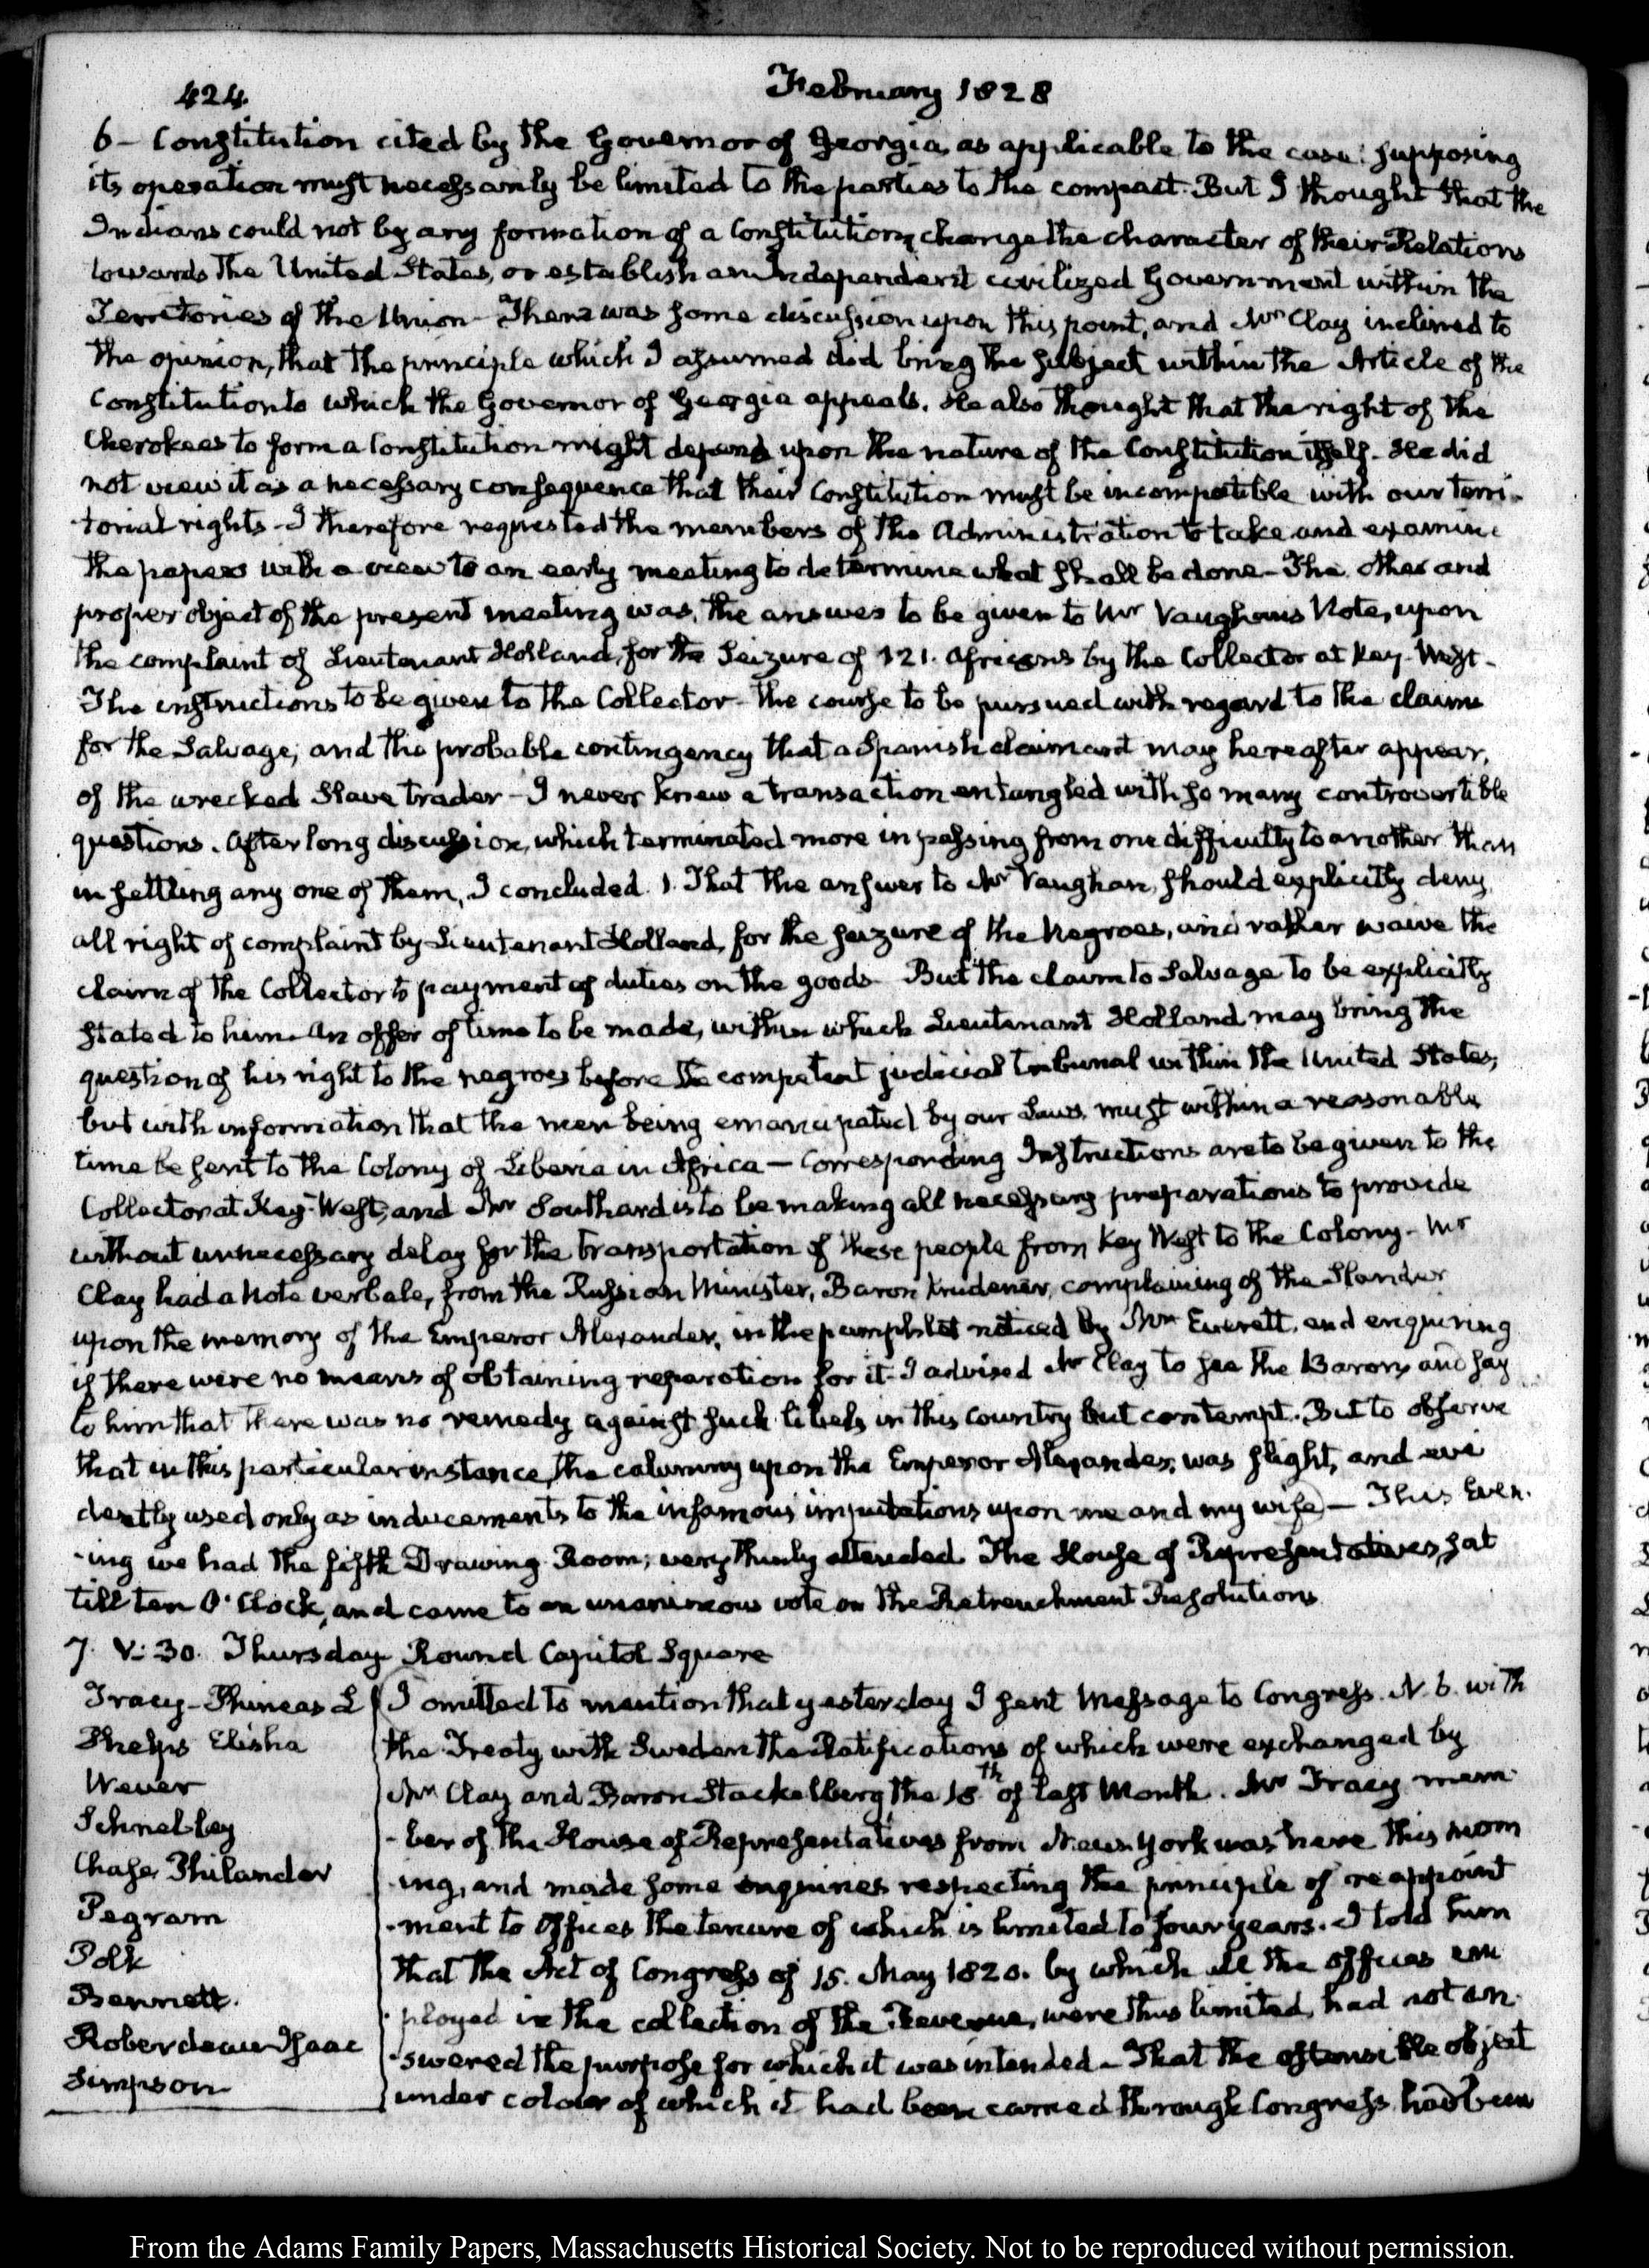 424.
February 1828
6 – Constitution cited by the Governor of Georgia, as applicable to the case: supposing
its operation must necessarily be limited to the parties to the compact. But I thought that the
Indians could not by any formation of a Constitution, change the character of their Relations
towards the United States, or establish an Independent civilized Government within the
Territories of the Union – There was some discussion upon this point, and Mr Clay inclined to
the opinion, that the principle which I assumed did bring the subject within the Article of the
Constitution to which the Governor of Georgia appeals. He also thought that the right of the
Cherokees to form a Constitution might depend upon the nature of the Constitution itself. He did
not view it as a necessary consequence that their Constitution must be incompatible with our terri-
-torial rights – I therefore requested the members of the Administration to take and examine
the papers with a view to an early meeting to determine what shall be done – The other and
proper object of the present meeting was, the answer to be given to Mr Vaughan's Note, upon
the complaint of Lieutenant Holland, for the Seizure of 121. Africans by the Collector at Key-West –
The instructions to be given to the Collector – the course to be pursued with regard to the claim
for the Salvage; and the probable contingency that a Spanish claimant may hereafter appear,
of the wrecked Slave trader – I never knew a transaction entangled with so many controvertible
questions. After long discussion, which terminated more in passing from one difficulty to another than
in settling any one of them, I concluded 1. That the answer to Mr Vaughan, should explicitly deny
all right of complaint by Lieutenant Holland, for the seizure of the Negroes, and rather waive the
claim of the Collector to payment of duties on the goods – But the claim to Salvage to be explicitly
stated to him – An offer of time to be made, within which Lieutenant Holland may bring the
question of his right to the negroes before the competent judicial tribunal within the United States;
but with information that the men being emancipated by our Laws, must within a reasonable
time be sent to the Colony of Liberia in Africa – Corresponding Instructions are to be given to the
Collector at Key-West; and Mr Southard is to be making all necessary preparations to provide
without unnecessary delay for the transportation of these people from Key West to the Colony – Mr
Clay had a Note verbale, from the Russian Minister, Baron Krudener, complaining of the Slander
upon the memory of the Emperor Alexander, in the pamphlet noticed by Mr Everett, and enquiring
if there were no means of obtaining reparation for it – I advised Mr Clay to see the Baron, and say
to him that there was no remedy against such libels in this Country but contempt. But to observe
that in this particular instance, the calumny upon the Emperor Alexander, was slight, and evi
dently used only as inducements to the infamous imputations upon me and my wife – This Even-
-ing we had the fifth Drawing Room; very thinly attended. The House of Representatives, sat
till ten O'Clock, and came to an unanimous vote on the Retrenchment Resolutions
7. V: 30. Thursday. Round Capitol Square
Tracy – Phineas L
Phelps Elisha
Wever
Schnebley
Chase Philander
Pegram
Polk
Bennett.
Roberdeau Isaac
Simpson
I omitted to mention that yesterday I sent Message to Congress. N. 6. with
the Treaty with Sweden the Ratifications of which were exchanged by
Mr Clay and Baron Stackelberg the 18th of last Month. Mr Tracy mem-
-ber of the House of Representatives from New-York was here this morn
-ing, and made some enquiries respecting the principle of reappoint
-ment to Offices the tenure of which is limited to four years. I told him
that the Act of Congress of 15. May 1820. by which all the offices em
-ployed in the collection of the Revenue, were thus limited, had not an-
-swered the purpose for which it was intended – That the ostensible object
under colour of which it had been carried through Congress had been
From the Adams Family Papers, Massachusetts Historical Society. Not to be reproduced without permission.